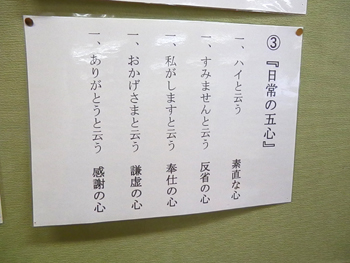 ③『日常の五心』
一、ハイと云う 素直な心
一、すみませんと云う 反省の心
一、私がしますと云う 奉仕の心
一、おかげさまと云う 謙虚の心
一、ありがとうと云う 感謝の心